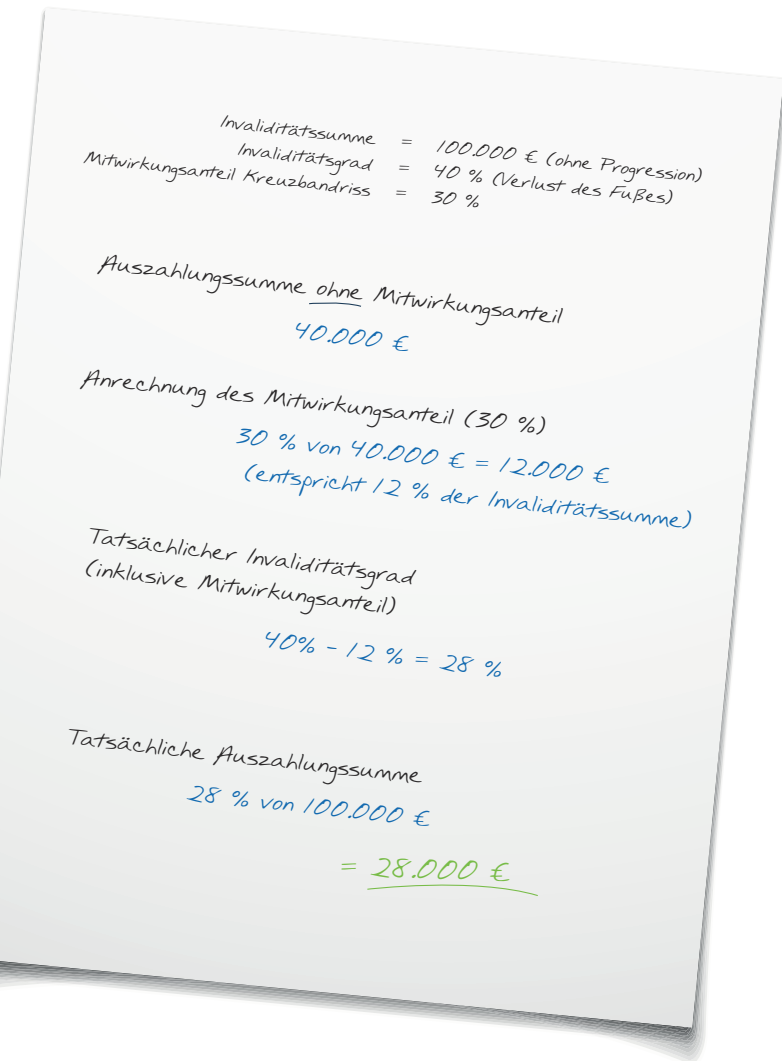 Invaliditätssumme = 100.000 € (ohne Progression)
Invaliditätsgrad = 40 % (Verlust des Fußes)
Mitwirkungsanteil Kreuzbandriss = 30 %
Auszahlungssumme ohne Mitwirkungsanteil
40.000 €
Anrechnung des Mitwirkungsanteil (30 %)
30 % von 40.000 € = 12.000 €
(entspricht 12 % der Invaliditätssumme)
Tatsächlicher Invaliditätsgrad
(inklusive Mitwirkungsanteil)
40% - 12 % = 28 %
Tatsächliche Auszahlungssumme
28 % von 100.000 €
= 28.000 €